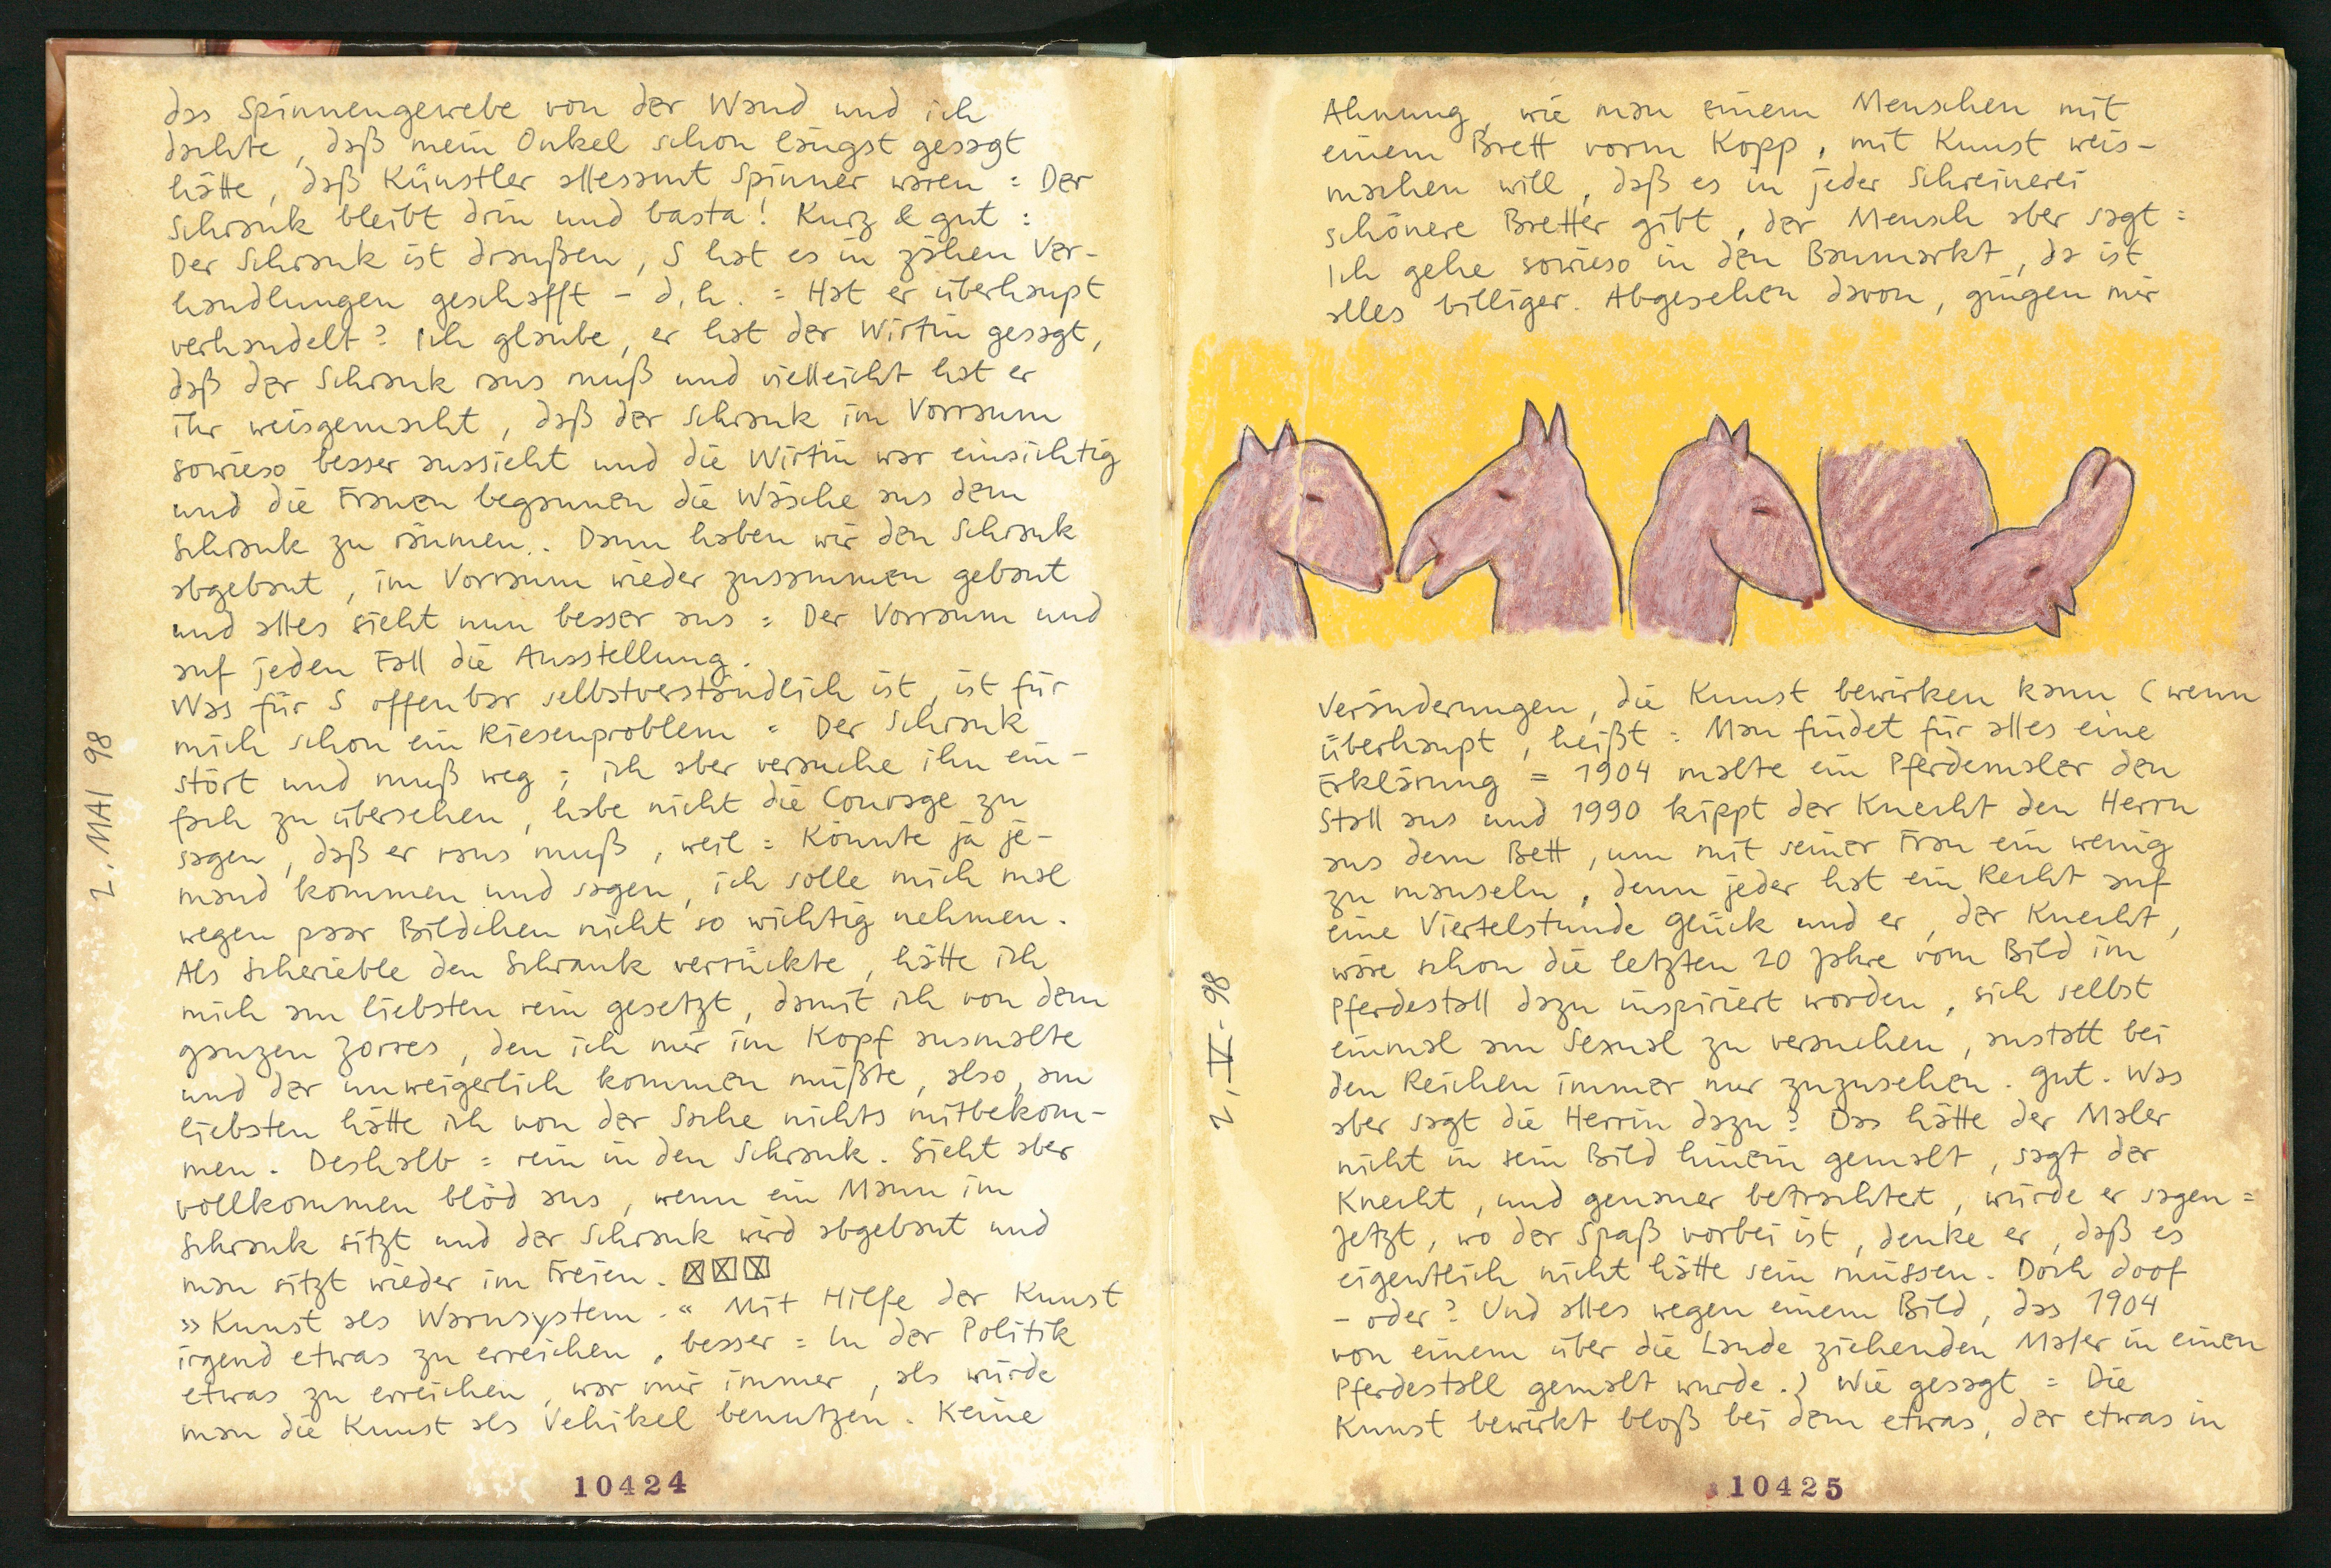 das Spinnengewebe von der Wand und ich
dachte, daß mein Onkel schon längst gesagt
hätte, daß Künstler allesamt Spinner wären = Der
Schrank bleibt drin und basta! Kurz & gut :
Der Schrank ist draußen, S hat es in zähen Ver-
handlungen geschafft – d.h. = Hat er überhaupt
verhandelt? Ich glaube, er hat der Wirtin gesagt,
daß der Schrank raus muß und vielleicht hat er
ihr weisgemacht, daß der Schrank im Vorraum
sowieso besser aussieht und die Wirtin war einsichtig
und die Frauen begannen die Wäsche aus dem
Schrank zu räumen.. Dann haben wir den Schrank
abgebaut, im Vorraum wieder zusammen gebaut
und alles sieht nun besser aus = Der Vorraum und
auf jeden Fall die Ausstellung.
Was für S offenbar selbstverständlich ist, ist für
mich schon ein Riesenproblem = Der Schrank
stört und muß weg ; ich aber versuche ihn ein-
fach zu übersehen, habe nicht die Courage zu
sagen, daß er raus muß, weil = Könnte ja je-
mand kommen und sagen, ich solle mich mal
wegen paar Bildchen nicht so wichtig nehmen.
Als Scherieble den Schrank verrückte, hätte ich
mich am liebsten rein gesetzt, damit ich von dem
ganzen Zorres, den ich mir im Kopf ausmalte
und der unweigerlich kommen müßte, also, am
liebsten hätte ich von der Sache nichts mitbekom-
men. Deshalb = rein in den Schrank. Sieht aber
vollkommen blöd aus, wenn ein Mann im
Schrank sitzt und der Schrank wird abgebaut und
man sitzt wieder im Freien. ☒☒☒
»Kunst als Warnsystem.« Mit Hilfe der Kunst
irgend etwas zu erreichen, besser = In der Politik
etwas zu erreichen, war mir immer, als würde
man die Kunst als Vehikel benutzen. Keine
2. MAI 98
10424
Ahnung, wie man einem Menschen mit
einem Brett vorm Kopp, mit Kunst weis-
machen will, daß es in jeder Schreinerei
schönere Bretter gibt, der Mensch aber sagt =
Ich gehe sowieso in den Baumarkt, da ist
alles billiger. Abgesehen davon, gingen mir
Veränderungen, die Kunst bewirken kann (wenn
überhaupt, heißt = Man findet für alles eine
Erklärung = 1904 malte ein Pferdemaler den
Stall aus und 1990 kippt der Knecht den Herrn
aus dem Bett, um mit seiner Frau ein wenig
zu mauseln, denn jeder hat ein Recht auf
eine Viertelstunde Glück und er, der Knecht,
wäre schon die letzten 20 Jahre vom Bild im
Pferdestall dazu inspiriert worden, sich selbst
einmal am Sexual zu versuchen, anstatt bei
den Reichen immer nur zuzusehen. Gut. Was
aber sagt die Herrin dazu? Das hätte der Maler
nicht in sein Bild hinein gemalt, sagt der
Knecht, und genauer betrachtet, würde er sagen =
Jetzt, wo der Spaß vorbei ist, denke er, daß es
eigentlich nicht hätte sein müssen. Doch doof
– oder? Und alles wegen einem Bild, das 1904
von einem über die Lande ziehenden Maler in einen
Pferdestall gemalt wurde.) Wie gesagt = Die
Kunst bewirkt bloß bei dem etwas, der etwas in
2. V. 98
10425